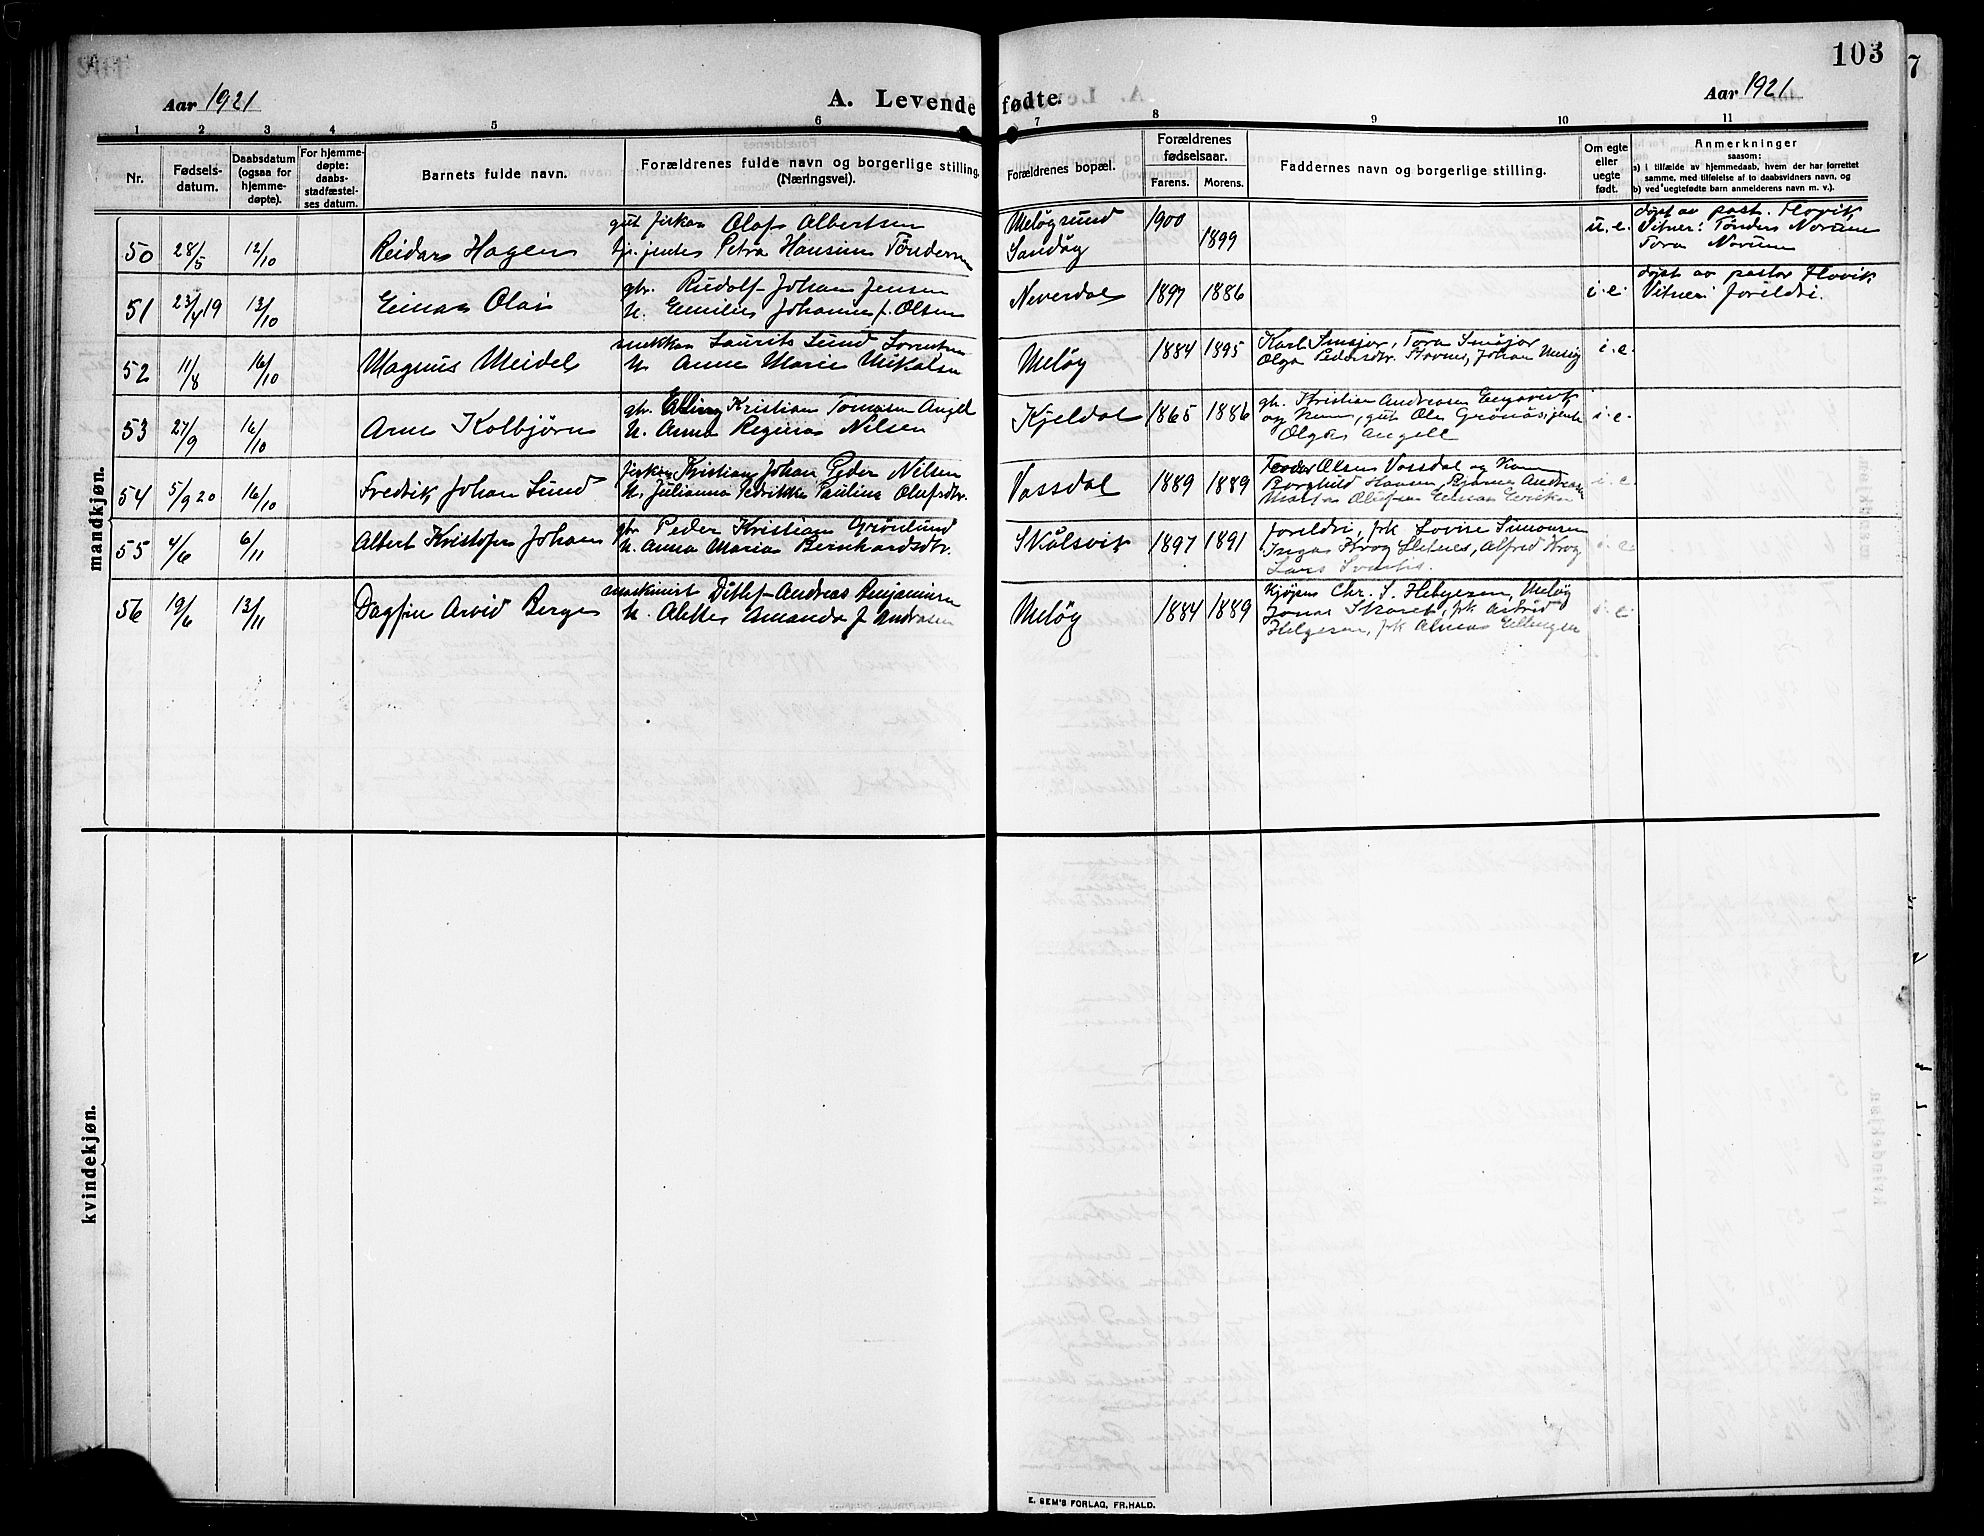 103
7
Aar 1921
A. Levende fødte.
Aar 1921
1 2 3 4 5 6 7 8 9 10 11
Nr.
Fødsels-
datum.
Daabsdatum
(ogsaa for
hjemme-
døpte).
For hjemme-
døpte:
daabs-
stadfæstel-
ses datum.
Barnets fulde navn.
Forældrenes fulde navn og borgerlige stilling.
(Næringsvei).
Forældrenes bopæl.
Forældrenes
fødselsaar.
Farens. Morens.
Faddernes navn og borgerlige stilling.
Om egte
eller
uegte
født.
Anmerkninger
saasom:
a) i tilfælde av hjemmedaab, hvem der har forrettet
samme, med tilføielse af to daabsvidners navn, og
b) ved uegtefødte barn anmelderens navn m. v.).
mandkjøn.
50 28/5 12/10 Reidar Hagen
gut fisker Olaf Albertsen
tj. jente Petra Hansine Tøndersen
Meløysund
Sandøy
1900 1899
u.e.
døpt av past. Hovik
Vitner: Tønder Norum
Tora Norum
51 23/4 19 13/10 Einar Olai
gbr. Rudolf Johan Jensen
H. Emilie Johanne f. Olsen
Neverdal 1897 1886
i.e.
døpt av pastor Hovik
Vitner: foreldre.
52 11/8 16/10 Magnus Meidel
snekker Laurits Lund Lorentsen
H. Anne Marie Mikalsen
Meløy 1884 1895
Karl Smsjor, Tora Smsjor
Olga Pedersdtr.
i.e.
53 27/9 16/10 Arne Kolbjørn
gbr. Elling Kristian Tomasen Angel
H. Anna Regine Nilsen
Kjeldal 1865 1886
gb. Kristian Andreasen Engavik
og kone, gut Ole Grønås, jente
Olga Angell
i.e.
54 5/9 20 16/10 Fredrik Johan Lund
fisker Kristian Johan Peder Nilsen
H. Julianna Fedrikke Pauline Olufsdtr.
Vassdal 1889 1889
Olsen Vassdal og kone
Borghild Hansen, Bjarne Andreasen
i.e.
55 4/6 6/11 Albert Kristofer Johan
gbr Peder Kristian Grønlund
H. Anna Maria Bernhardsdtr.
Skålsvik 1897 1891
foreldre, frk Lovise Simonsen
Inga Krog Sletnes, Alfred Krog
i.e.
56 19/6 13/11 Dagfin Arvid Berge
maskinist Ditlef Andreas Benjaminsen
H. Alette Amanda f. Andrasen
Meløy 1884 1889
Kjøpm Chr. S. Helgesen, Meløy
Jonas Skaret, frk Astrid
Helgesen, frk Alma Ellingsen
i.e.
kvindekjøn.
E. SEM'S FORLAG, FR.HALD.